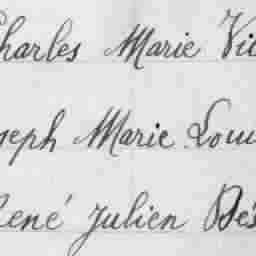 Charles Marie Vic
seph Marie Loui
René Julien Dés